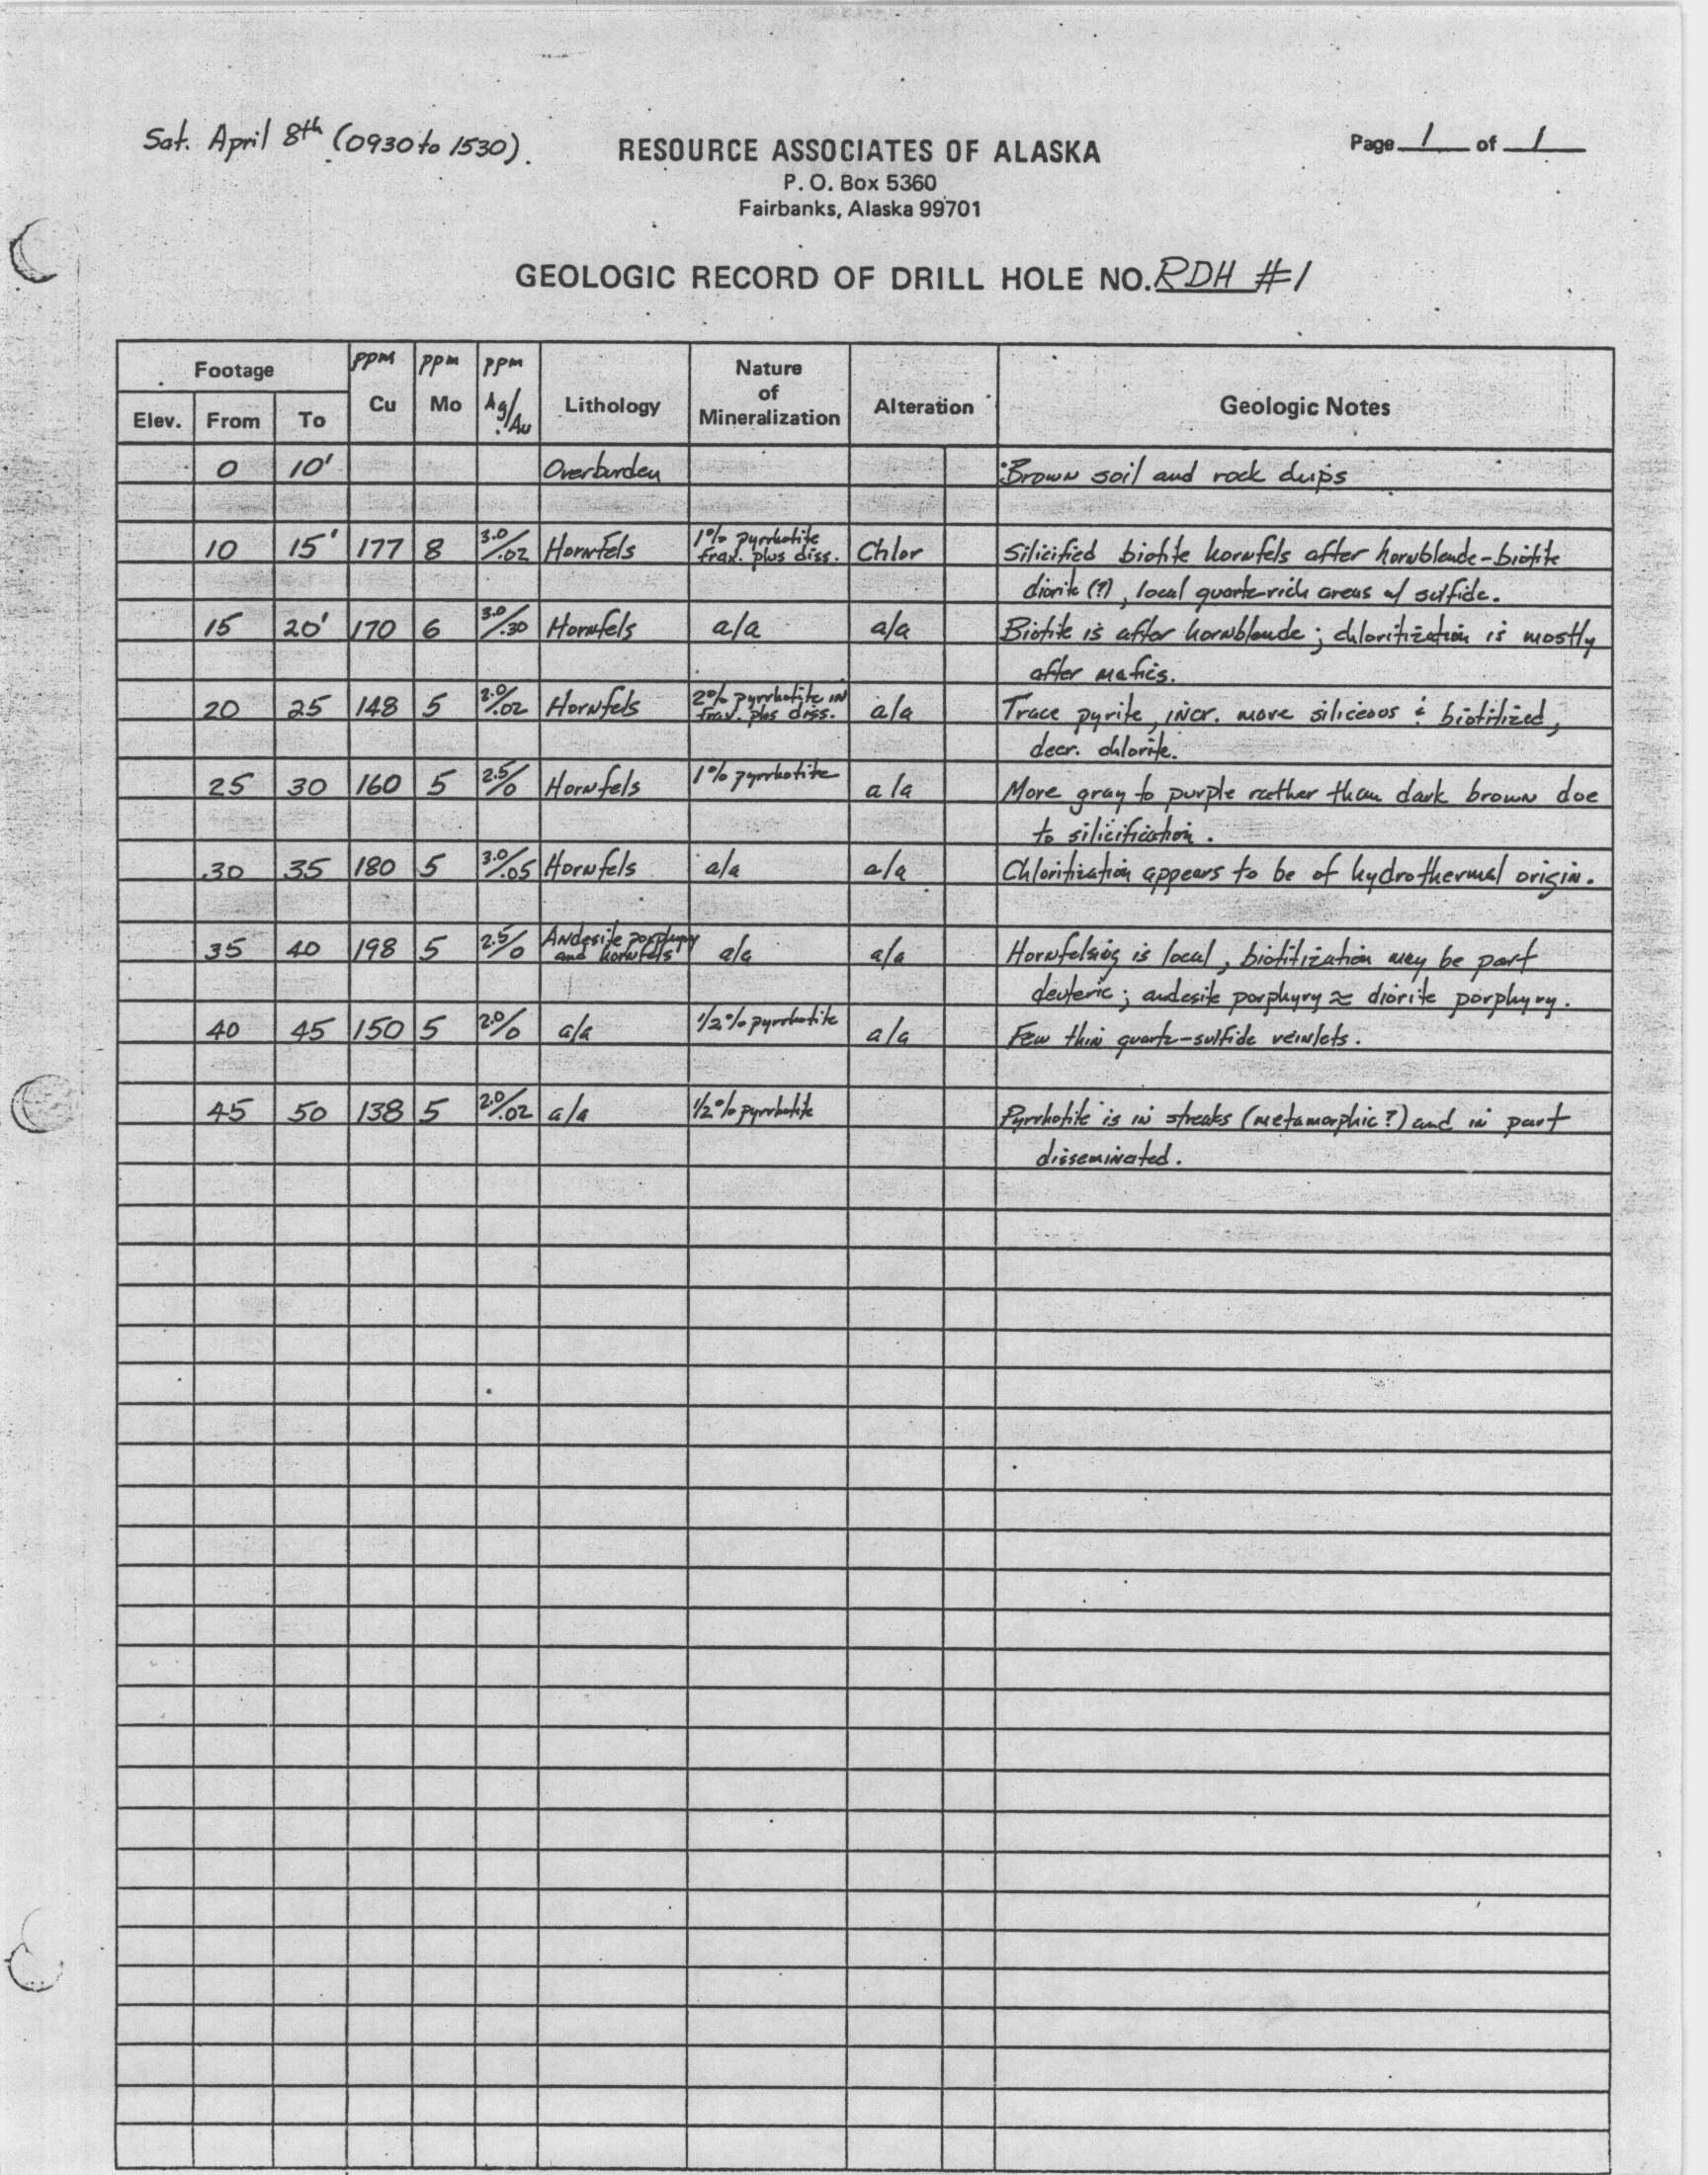 Sat. April 8th (0930 to 1530).
RESOURCE ASSOCIATES OF ALASKA
Page 1 of 1
P. O. Box 5360
Fairbanks, Alaska 99701
GEOLOGIC RECORD OF DRILL HOLE NO. RDH #1
Footage ppm ppm ppm Nature
of
Elev. From To Cu Mo Ag/Au Lithology Mineralization Alteration Geologic Notes
0 10' Overburden Brown soil and rock chips
10 15' 177 8 3.0/.02 Hornfels 1% pyrrhotite Chlor Silicified biotite hornfels after hornblende-biotite
frax. plus diss. diorite (?), local quartz-rich areas w/ sulfide.
15 20' 170 6 3.0/.30 Hornfels a/a a/a Biotite is after hornblende; chloritization is mostly
after mafics.
20 25 148 5 2.0/.02 Hornfels 2% pyrrhotite in a/a Trace pyrite, incr. more siliceous & biotitized,
frax. plus diss. decr. chlorite.
25 30 160 5 2.5/0 Hornfels 1% pyrrhotite a/a More gray to purple rather than dark brown due
to silicification.
30 35 180 5 3.0/.05 Hornfels a/a a/a Chloritization appears to be of hydrothermal origin.
35 40 198 5 2.5/0 Andesite porphyry a/a a/a Hornfelsing is local, biotitization may be part
and hornfels deuteric; andesite porphyry ≈ diorite porphyry.
40 45 150 5 2.0/0 a/a 1/2% pyrrhotite a/a Few thin quartz-sulfide veinlets.
45 50 138 5 2.0/.02 a/a 1/2% pyrrhotite Pyrrhotite is in streaks (metamorphic?) and in part
disseminated.